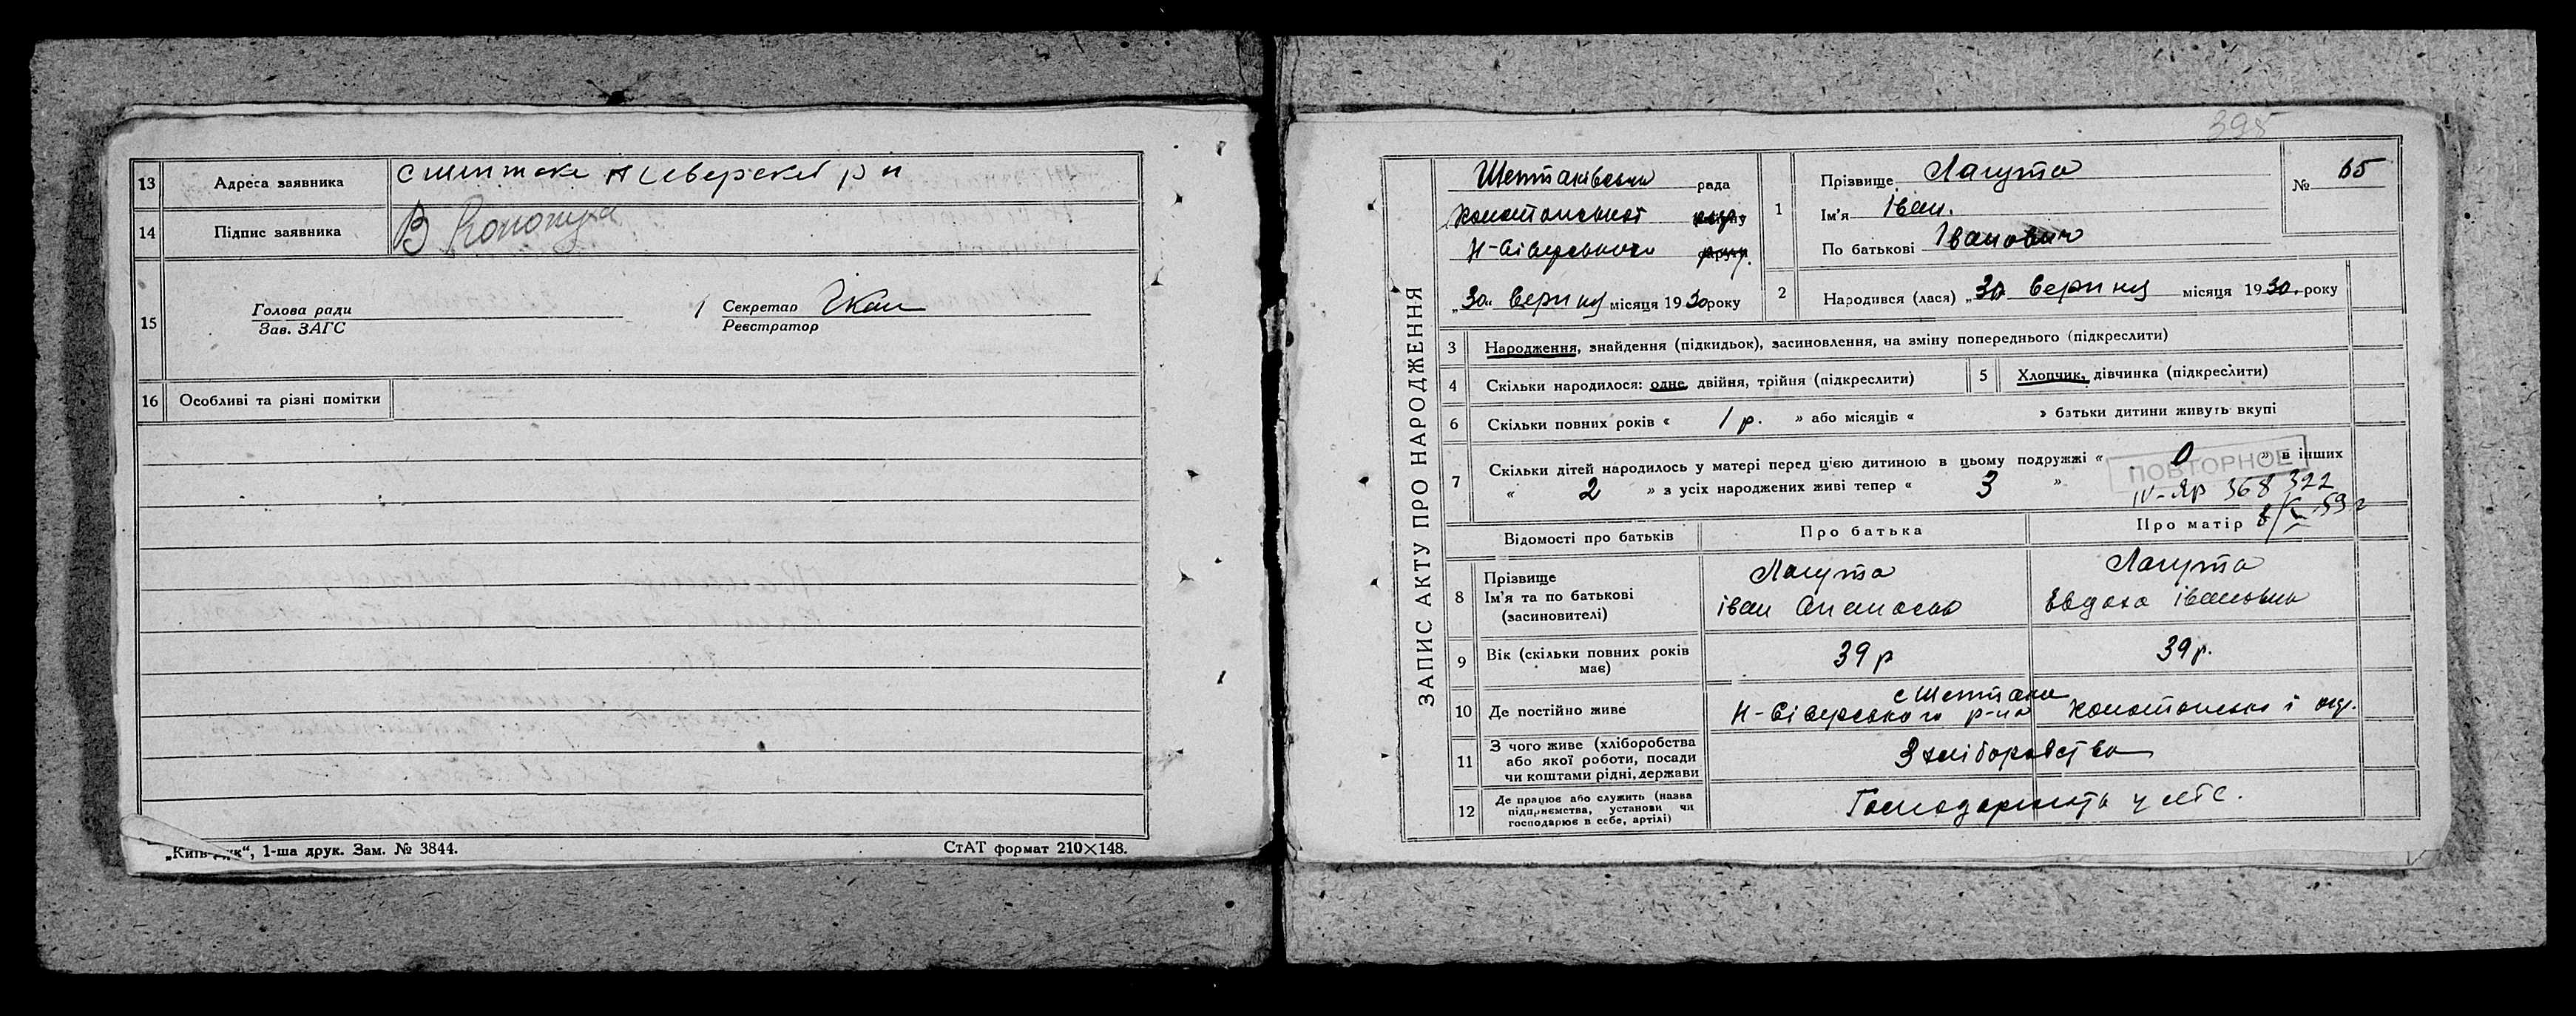 13 Адреса заявника с Шептаки Н Сіверскі р н
14 Підпис заявника В Кононуха
15
Голова ради
Зав. ЗАГС
Секретар
Реєстратор
16 Особливі та різні помітки
1-ша друк. Зам. № 3844.
СтАТ формат 210×148.
395
ЗАПИС АКТУ ПРО НАРОДЖЕННЯ
Шептаківська рада
Конотопської окр
Н-Сіверського
„30„ серпня місяця 1930 року
1 Прізвище Лагута
Ім'я Іван.
По батькові Іванович
№ 65
2 Народився (лася) „30 серпня місяця 1930. року
3 Народження, знайдення (підкидьок), засиновлення, на зміну попереднього (підкреслити)
4 Скільки народилося: одне, двійня, трійня (підкреслити)
5 Хлопчик, дівчинка (підкреслити)
6 Скільки повних років « 1 р. » або місяців « » батьки дитини живуть вкупі
7 Скільки дітей народилось у матері перед цією дитиною в цьому подружжі « 0 » в інших
« 2 » з усіх народжених живі тепер « 3 »
ПОВТОРНОЕ
IV-ЯР 368322
Відомості про батьків
Про батька
Про матір
8 Прізвище
Ім'я та по батькові
(засновителі)
Лагута
Іван Опанасов
Лагута
Евдоха Івановна
9 Вік (скільки повних років має)
39 р
39 р.
10 Де постійно живе
с Шептаки
Н-Сіверського р-на Конотопської окр.
11 З чого живе (хліборобства
або якої роботи, посади
чи коштами рідні, держави
З хліборобства
12 Де працює або служить (назва
підприємства, установи чи
господарює в себе, артілі)
Господарюють у себе.